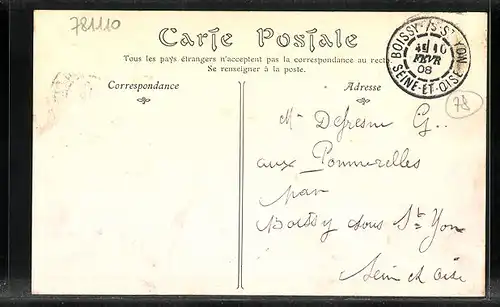 781110
Carte Postale
Tous les pays étrangers n'acceptent pas la correspondance au recto
Se renseigner à la poste.
BOISSY-S-ST YON
10
FEVR
08
SEINE-ET-OISE
78
Correspondance
Adresse
Mr Defresne G.
aux Pommerelles
par
Boissy sous St Yon
Seine et Oise